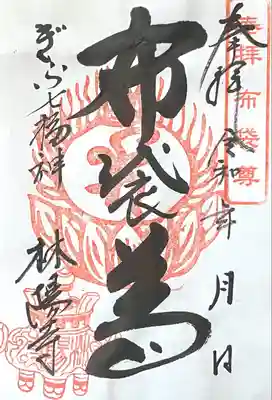 奉拝
令和 年 月 日
奉拝布袋尊
布袋尊
ぎふ七福神
林陽寺